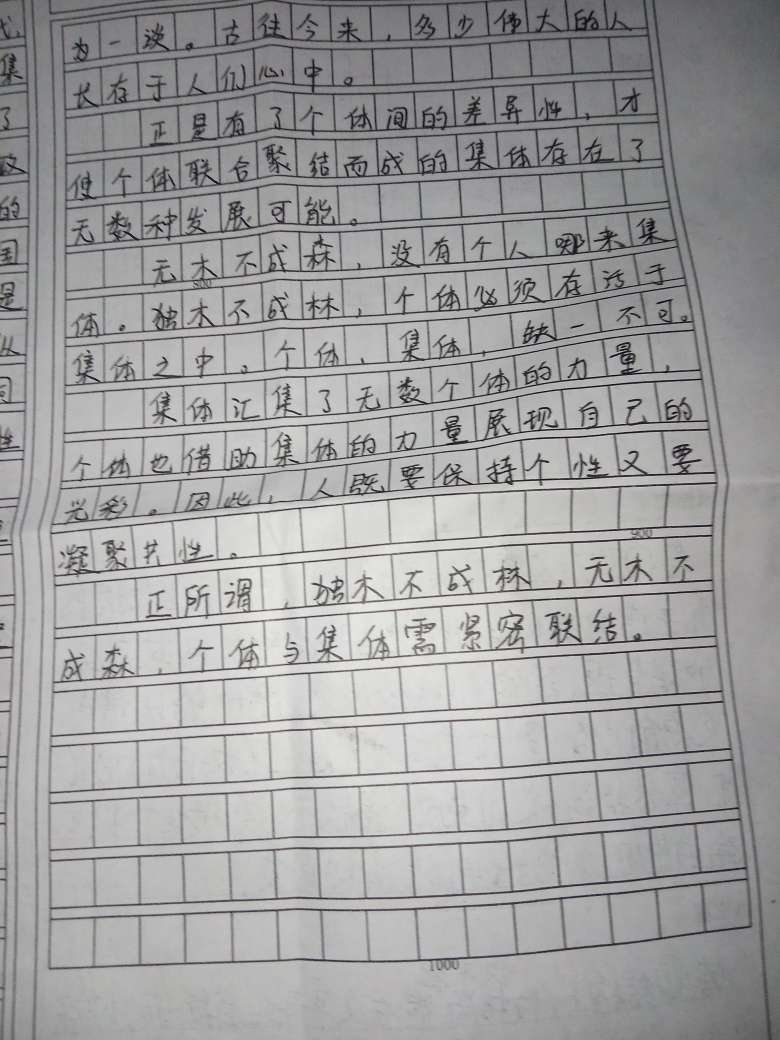 为一谈。古往今来，多少伟大的人
长存于人们心中。
正是有了个体间的差异性，才
使个体联合聚结而成的集体存在了
无数种发展可能。
无木不成森，没有个人哪来集
800
体。独木不成林，个体必须存活于
集体之中。个体、集体，缺一不可。
集体汇集了无数个体的力量，
个体也借助集体的力量展现自己的
光彩。因此，人既要保持个性又要
凝聚共性。
900
正所谓，独木不成林，无木不
成森，个体与集体需紧密联结。
1000